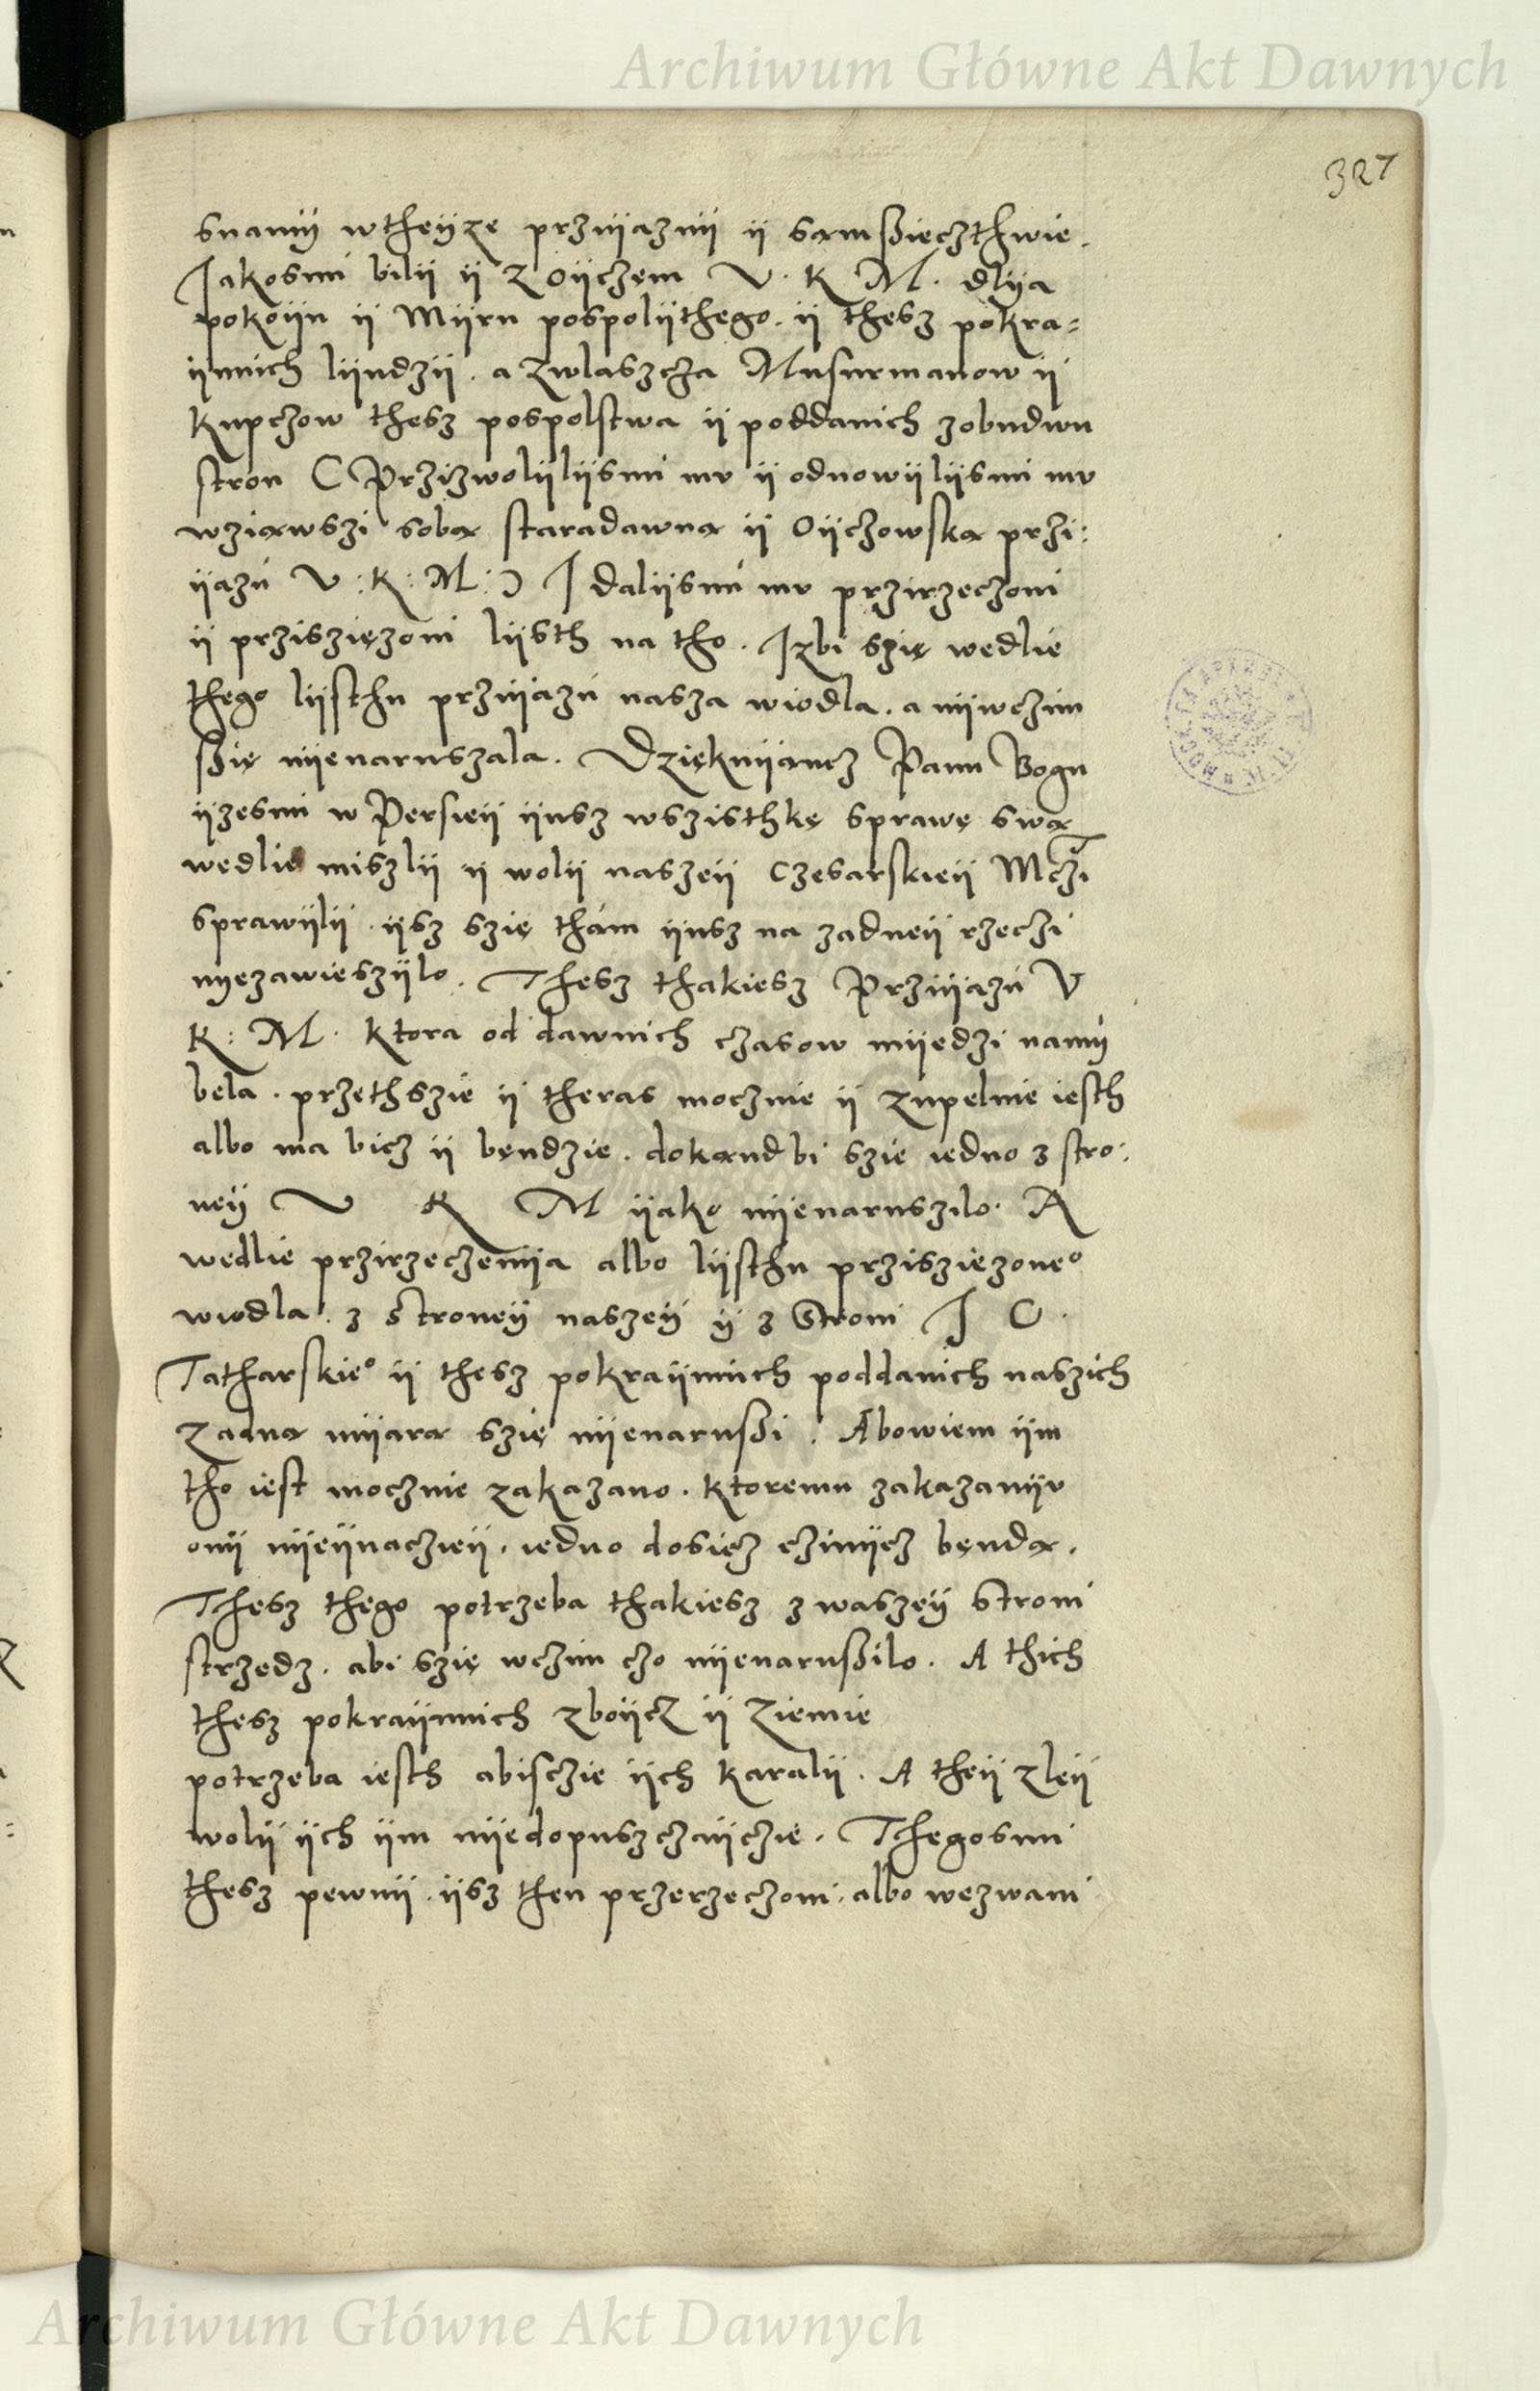 Archiwum Główne Akt Dawnych
327
snamÿ wtheÿze przÿiaznÿ ÿ sąmßieczthwie.
Jakosmi bilÿ ÿ z Oÿczem V. K M. dlÿa
pokoÿu ÿ Mÿru pospolÿthego. ÿ thesz pokra=
ÿnnich lÿudzÿ. a zwlaszcza Musurmanow ÿ
kupczow thesz pospolstwa ÿ poddanich zobudwu
stron C Przizwolÿlÿsmi mÿ ÿ odnowÿlÿsmi mÿ
wziąwszi sobą staradawną ÿ Oÿczowską przi:
ÿazń V: K: M: Ɔ J dalÿsmi mÿ przirzeczoni
ÿ przisziężoni lÿsth na tho. Jzbi szię wedlie
thego lÿsthu przÿiazń nasza wiodla. a nÿwczim
ßię nÿenaruszala. Dziękuÿącz Panu Bogu
ÿzesmi w Persieÿ ÿusz wszisthkę sprawę swą
wedlie miszlÿ ÿ wolÿ naszeÿ Czesarskieÿ Mczi
sprawÿlÿ. ÿsz szię thám ÿusz na zadneÿ rzeczi
nyezawieszÿlo. Thesz thakiesz Przÿiazń V
K: M. ktora od dawnich czasow mÿedzi namÿ
bela. przethszie ÿ theras mocznie ÿ zupelnie iesth
albo ma bicz ÿ będzie. dokąnd bi szie iedno z stro:
neÿ V K M ÿako nÿenaruszilo. A
wedlie przirzeczenÿa albo lÿsthu przisziezoneº
wiodla. z stroneÿ naszeÿ ÿ z Stroni J C.
Tatharskieº ÿ thesz pokraÿnnich poddanich naszich
zadną mÿarą szię nÿenarußi. Abowiem ÿm
tho iest mocznie zakazano. ktoremu zakazanÿu
onÿ nÿeÿnaczieÿ. iedno dosicz czinÿcz będą.
Thesz thego potrzeba thakiesz z waszeÿ Stroni
strzedz. abi szię wczim czo nÿenarußilo. A thich
thesz pokraÿnnich zboÿcz ÿ ziemie
potrzeba iesth abisczie ÿch karalÿ. A theÿ zleÿ
wolÿ ÿch ÿm nÿedopuszczaÿczie. Thegosmi
thesz pewnÿ. ÿsz then przerzeczoni. albo wezwani
Archiwum Główne Akt Dawnych